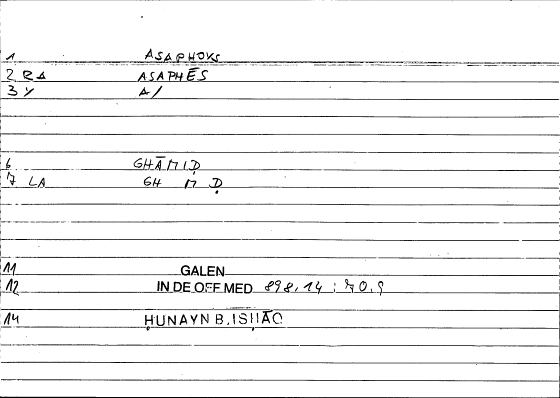 1 ASAPHOYS
2 RA ASAPHĒS
3 Y A/
6 GHĀMIḌ
7 LA GH M Ḍ
11 GALEN
12 IN DE OFF MED 898,14 : 70,9
14 ḤUNAYN B. ISḤĀQ